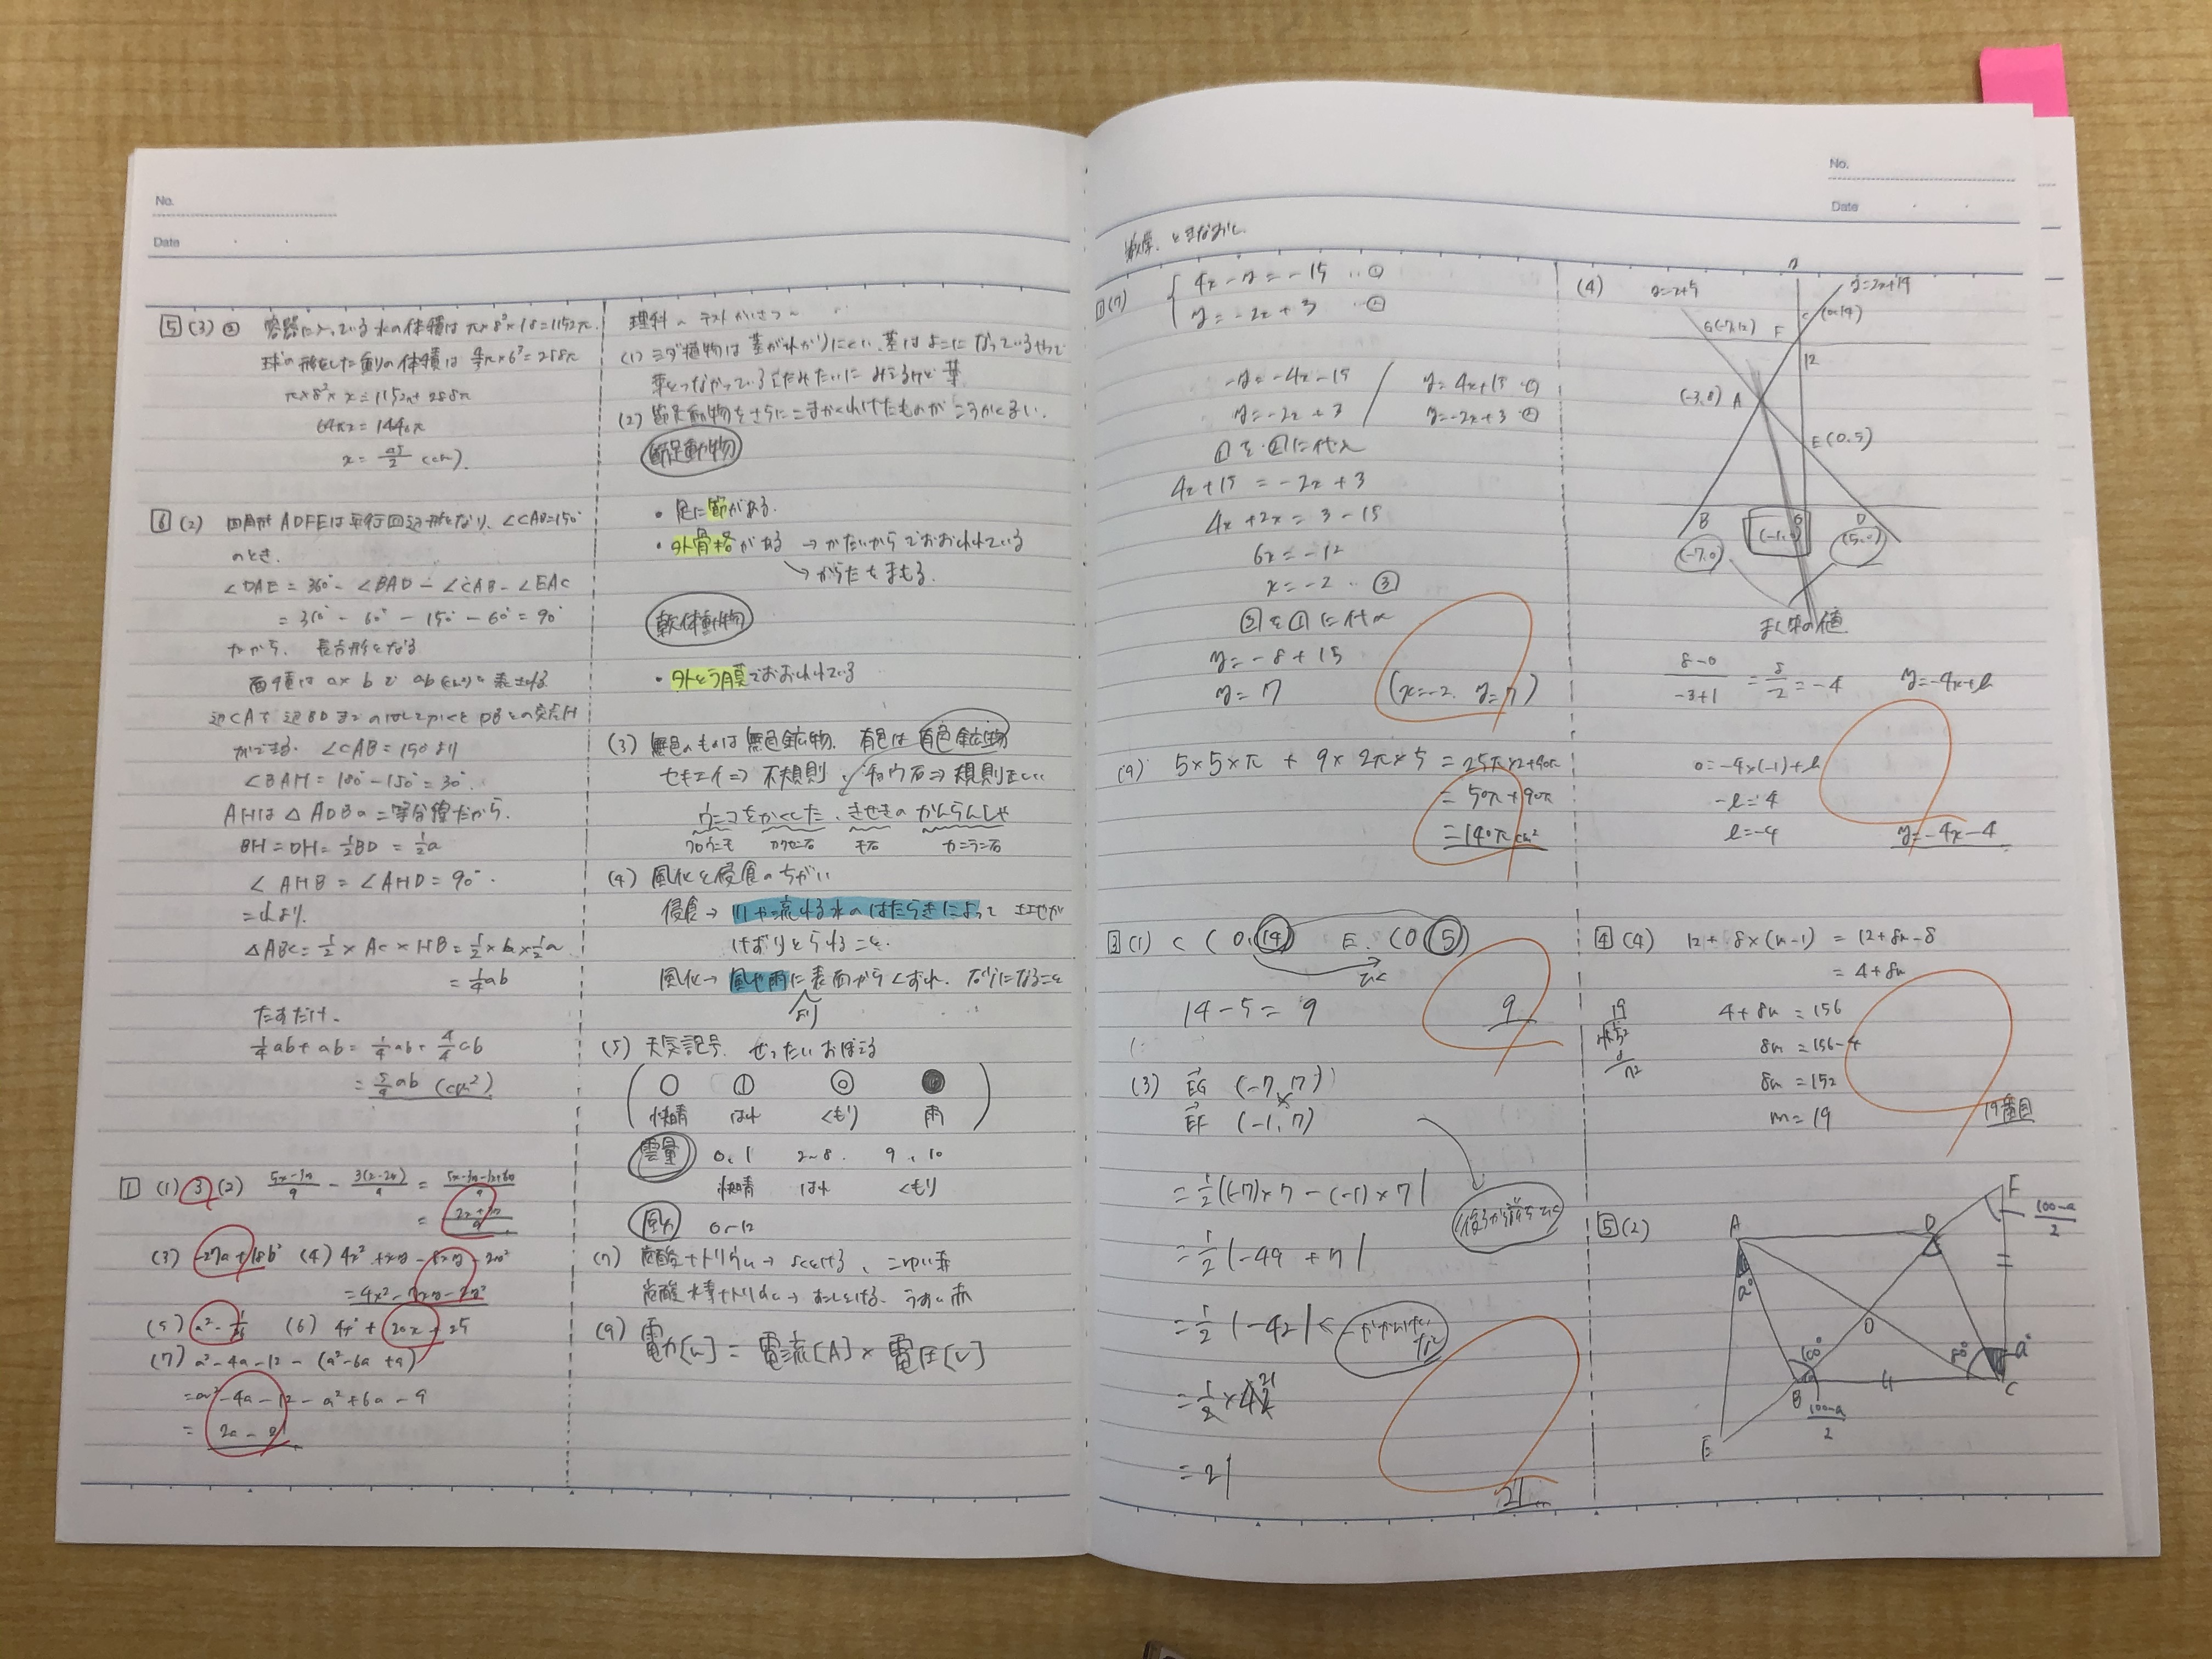 No.
Date
5 (3) ② 容器に入っている水の体積は π×8²×18=1152π.
球の形をした重りの体積は 4/3π×6³=288π
π×8²×x=1152π+288π
64πx=1440π
x=45/2 (cm)
6 (2) 四角形ADFEは平行四辺形となり、∠CAB=150°
のとき、
∠DAE=360°-∠BAD-∠CAB-∠EAC
=360°-60°-150°-60°=90°
だから、長方形となる
面積は a×b で ab(cm²)と表せる
∠CAB=150°より
∠BAH=180°-150°=30°
AHは△ADBの二等分線だから、
BH=DH=1/2BD=1/2a
∠AHB=∠AHD=90°.
これより、
△ABC=1/2×AC×HB=1/2×b×1/2a
=1/4ab
たすだけ、
1/4ab+ab=1/4ab+4/4ab
=5/4ab (cm²)
1 (1) 3 (2)
(3) -27a+18b² (4) 4x²+xy-8xy-2y²
=4x²-7xy-2y²
(5) a²-1/36 (6) 4x²+20x+25
(7) a²-4a-12-(a²-6a+9)
=a²-4a-12-a²+6a-9
=2a-21
理科
(1) シダ植物は茎がわかりにくい、茎はよこになっているやつで
葉とつながっているえだみたいにみえるけど葉
(2) 節足動物をさらにこまかくわけたものがこうかくるい.
節足動物
・足に節がある.
・外骨格がある → かたいからでおおわれている
→からだをまもる.
軟体動物
・外とう膜でおおわれている
(3) 無色のものは無色鉱物、有色は有色鉱物
セキエイ⇒不規則、チョウ石⇒規則正しい
ウニつをかくした、きせきのかんらんしゃ
クロウンモ カクセン石 キ石 カンラン石
(4) 風化と侵食のちがい
侵食→川や流れる水のはたらきによって土地が
けずりとられること.
風化→風や雨に表面からくずれ、
より
(5) 天気記号、ぜったいおぼえる
快晴 はれ くもり 雨
雲量 0、1 2~8. 9、10
快晴 はれ くもり
風力 0~12
(7) 炭酸+トリウム→
炭酸水素+トリウム→
(9) 電力[W]=電流[A]×電圧[V]
No.
Date
数学、ときなおし
1(7) 4x-y=-15 ‥①
y=-2x+3 ‥②
-y=-4x-15 / y=4x+15 ①
y=-2x+3 / y=-2x+3 ②
①を②に代入
4x+15=-2x+3
4x+2x=3-15
6x=-12
x=-2 ‥③
③を①に代入
y=-8+15
y=7 (x=-2, y=7)
(9) 5×5×π+9×2π×5=25π×2+90π
=50π+90π
=140πcm²
3 (1) C(0,14) E.(0 5)
ひく
14-5=9 9
(3) EG (-7,7)
EF (-1,7)
=1/2|(-7)×7-(-1)×7|
=1/2|-49+7|
=1/2|-42|
=1/2×42 21
=21
21
(4) y=x+5 y=2x+14
G(-7,12) F C (0,14)
12
(-3,8) A
E(0.5)
B D
(-7,0) (-1,0) (5,0)
まん中の値
8-0/-3+1=8/-2=-4 y=-4x+b
0=-4×(-1)+b
-b=4
b=-4 y=-4x-4
4 (4) 12+8×(n-1)=12+8n-8
=4+8n
4+8n=156
8n=156-4
8n=152
n=19
19番目
5 (2) A D F 100-a/2
a°
O
100° 80° a°
B C
100-a/2
E